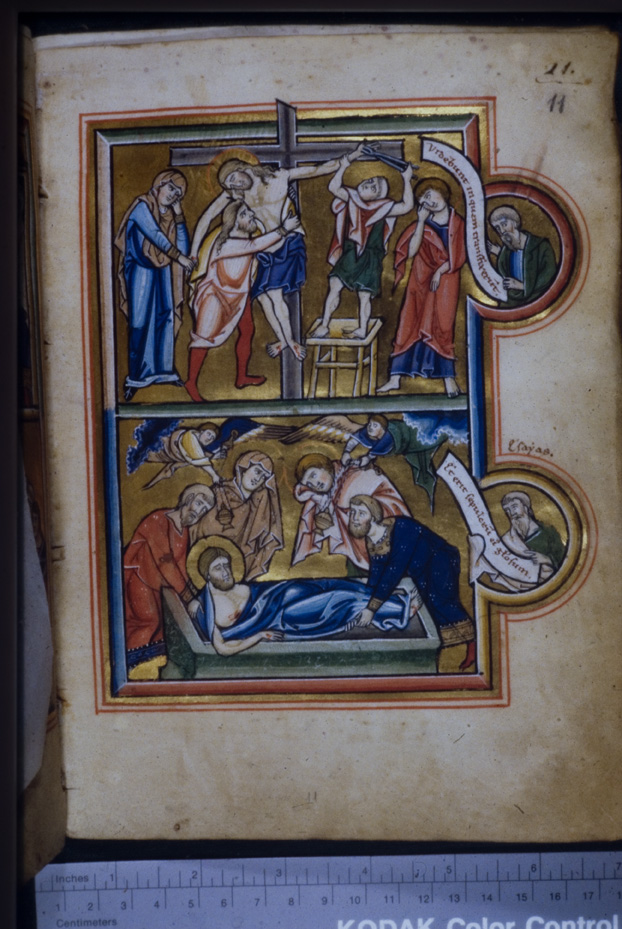 21.
11
Videbunt in quem transfixerunt.
Esayas.
Et erit sepulcrum ei gl'osum.
Inches 1 2 3 4 5 6 7
1 2 3 4 5 6 7 8 9 10 11 12 13 14 15 16 17
Centimeters
KODAK Color Control